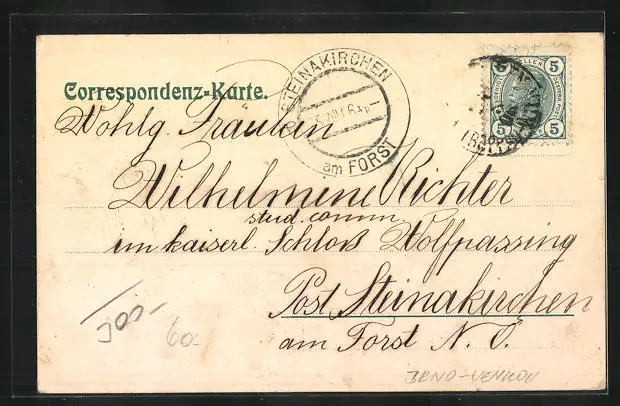 Correspondenz-Karte.
STEINAKIRCHEN
am FORST
HELLER
5 5
5 5
Wohlg. Fräulein
Wilhelmine Richter
stud. comm.
im kaiserl. Schloß Wolfpassing
Post Steinakirchen
am Forst N. Ö.
300-
60-
BRNO-VENKOV